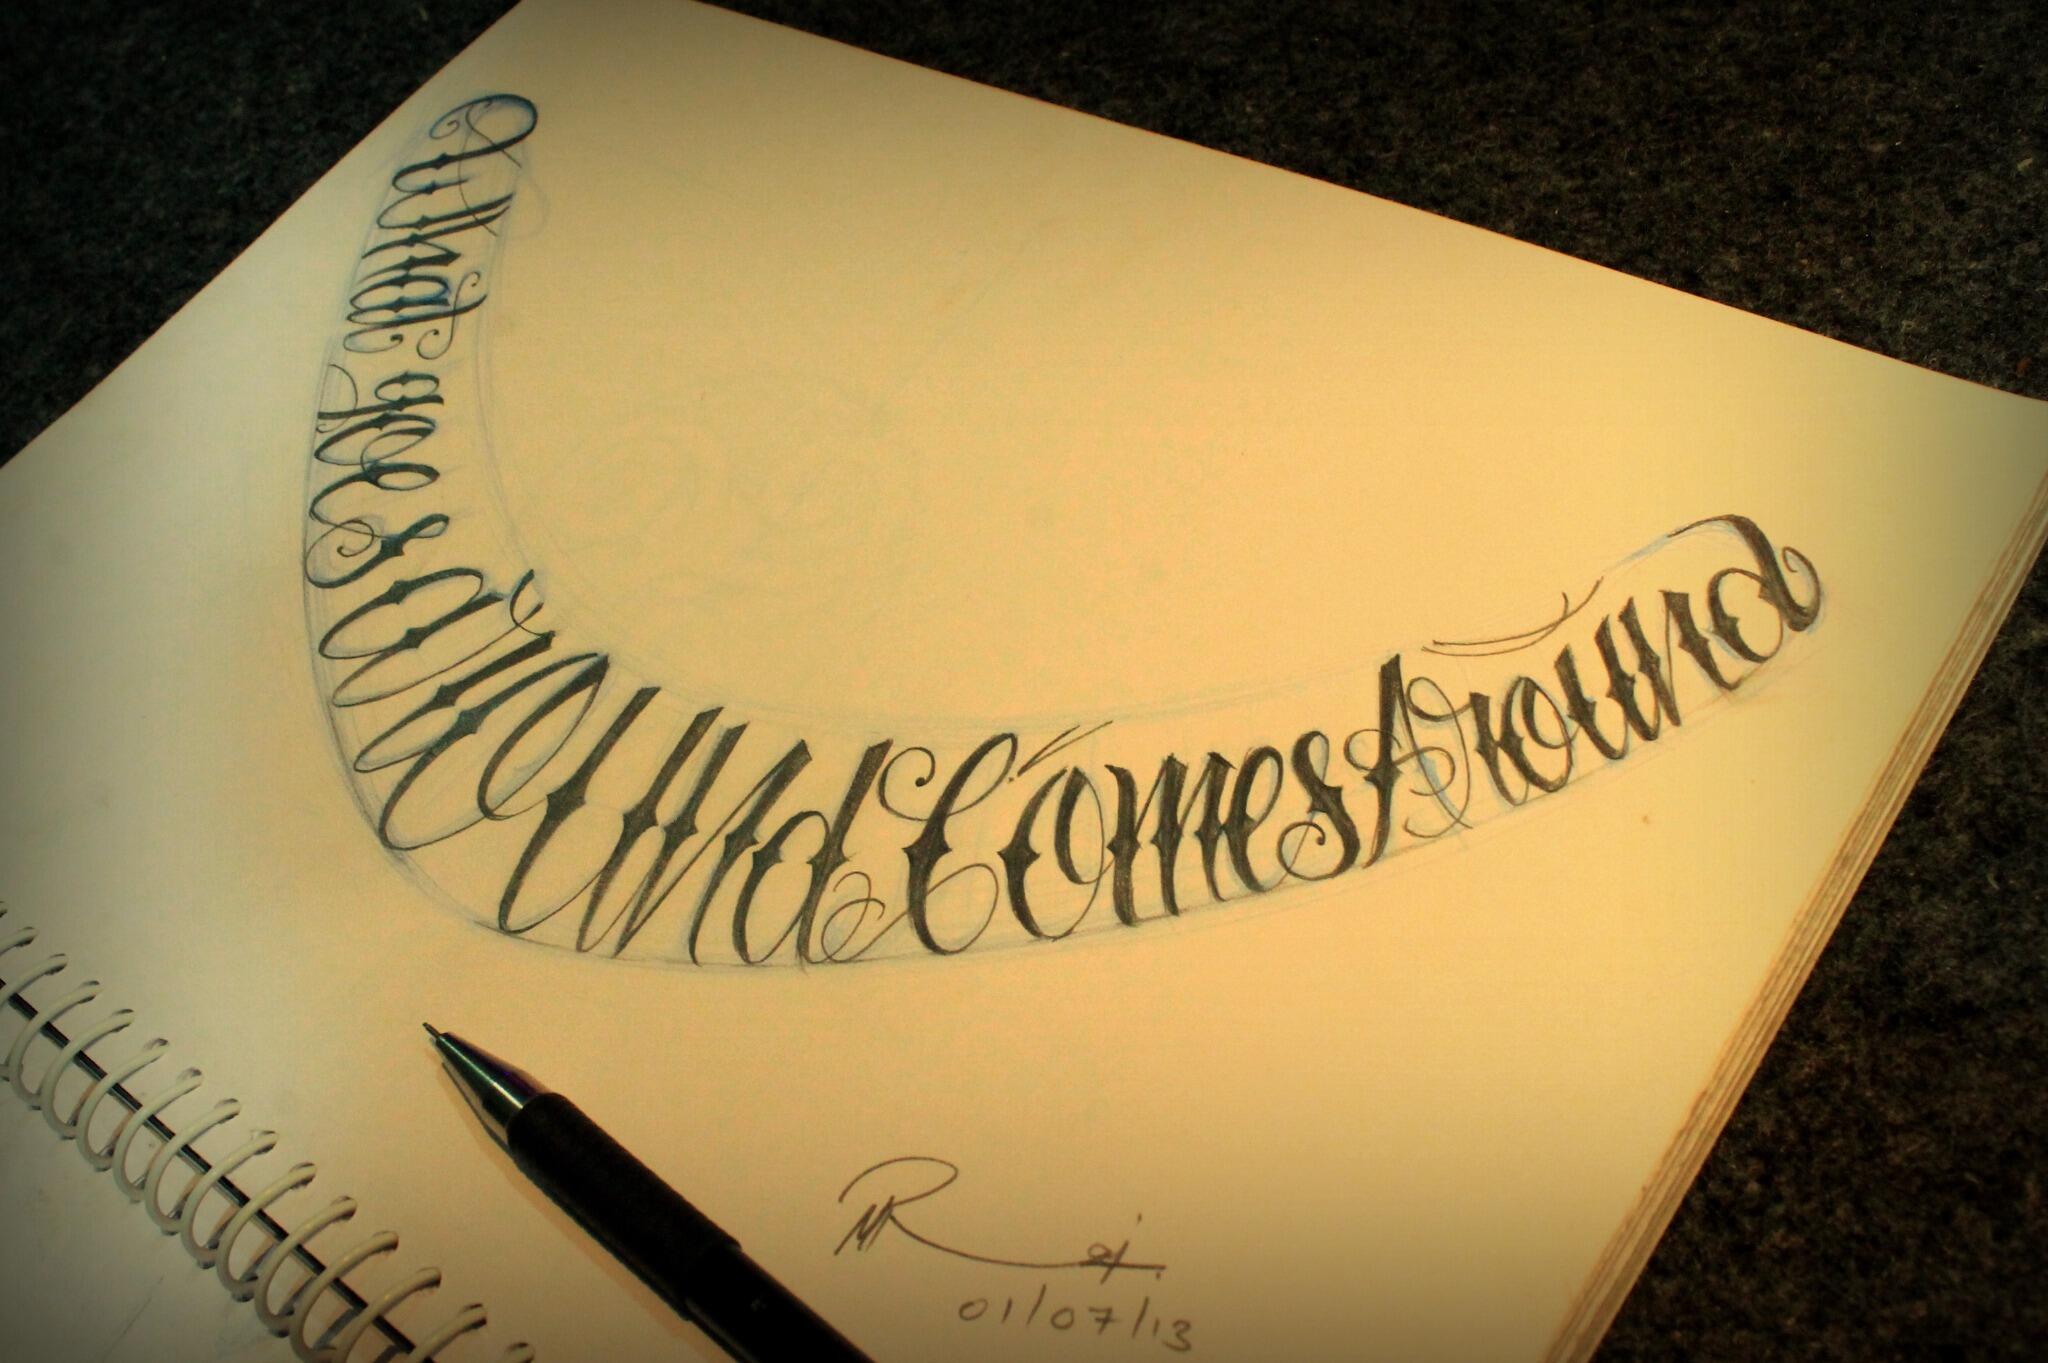 What goes around Comes Around
01/07/13